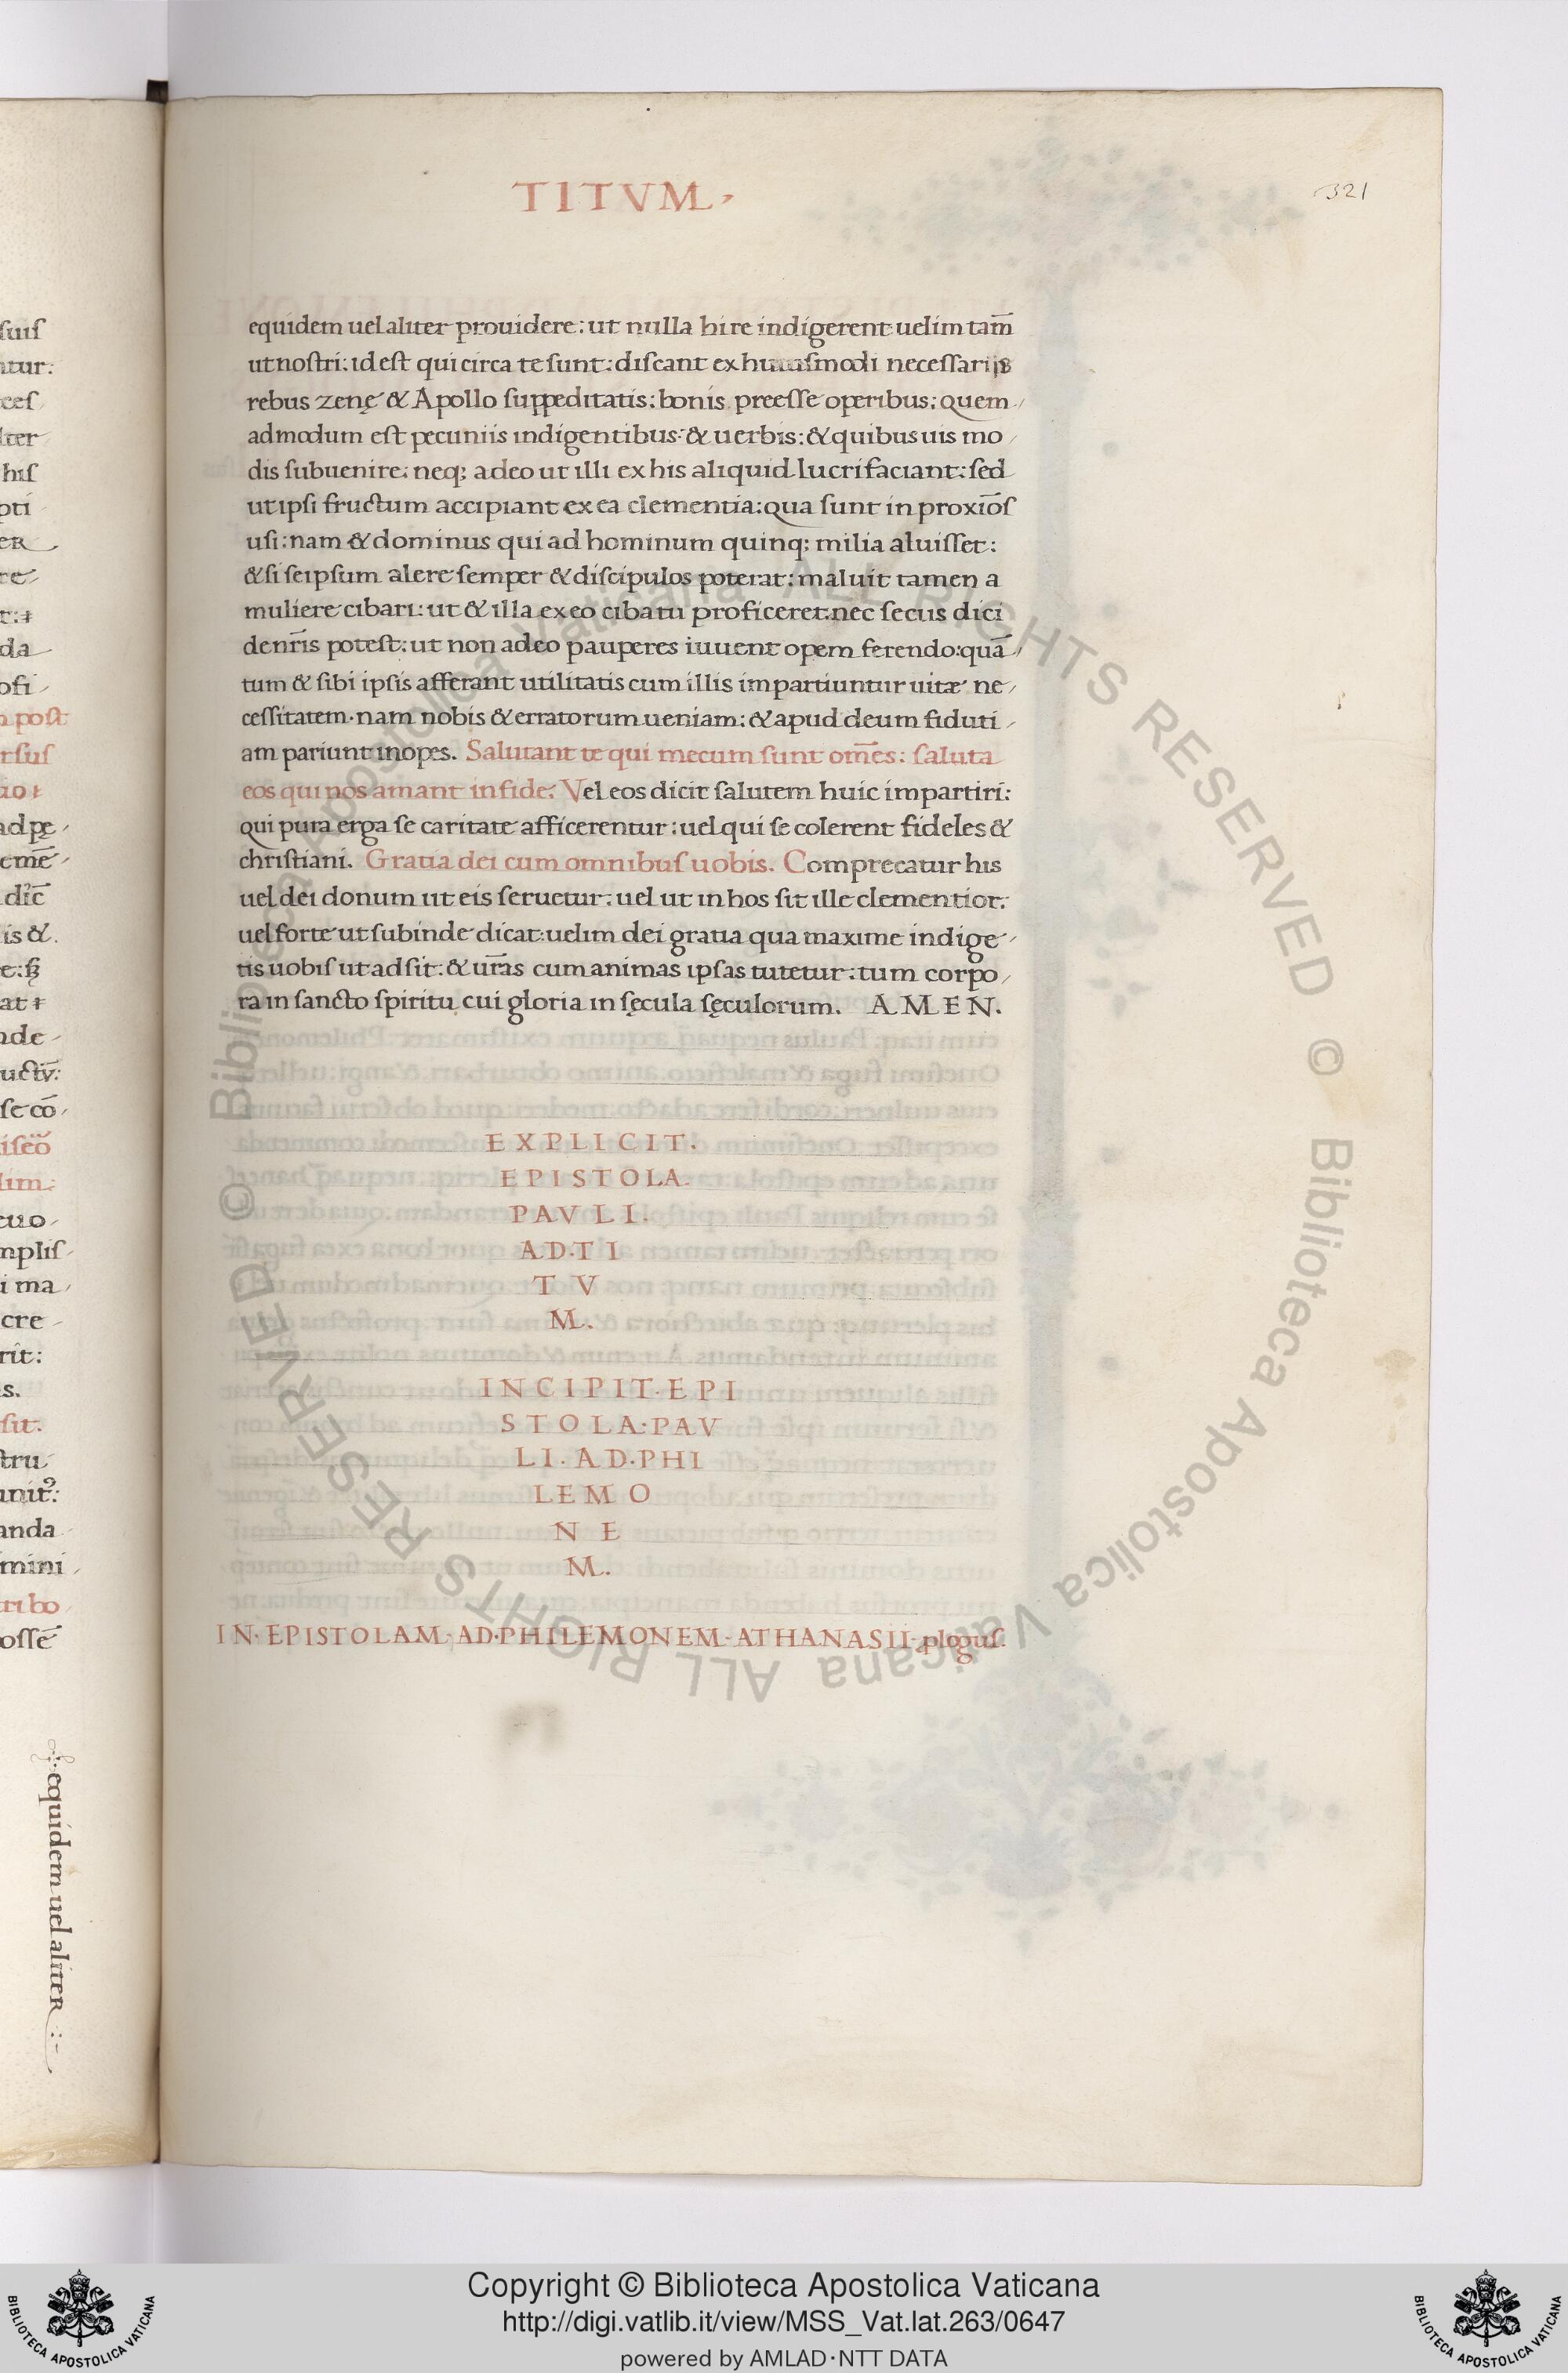 TITVM.
321
equidem uel aliter prouidere: ut nulla hi re indigerent: uelim tam̄
ut nostri: id est qui circa te sunt: discant ex huiusmodi necessarijs
rebus zenę & Apollo suppeditatis: bonis preesse operibus: quem
admodum est pecuniis indigentibus: & uerbis: & quibusuis mo
dis subuenire: neq; adeo ut illi ex his aliquid lucrifaciant: sed
ut ipsi fructum accipiant ex ea clementia: qua sunt in proxiōs
usi: nam & dominus qui ad hominum quinq; milia aluisset:
& si seipsum alere semper & discipulos poterat: maluit tamen a
muliere cibari: ut & illa ex eo cibatu proficeret: nec secus dici
de nr̄is potest: ut non adeo pauperes iuuent opem ferendo: quā
tum & sibi ipsis afferant utilitatis cum illis impartiuntur uitæ ne
cessitatem. nam nobis & erratorum ueniam: & apud deum fiduti
am pariunt inopes. Salutant te qui mecum sunt om̄es: saluta
eos qui nos amant in fide: Vel eos dicit salutem huic impartiri:
qui pura erga se caritate afficerentur: uel qui se colerent fideles &
christiani. Gratia dei cum omnibus uobis. Comprecatur his
uel dei donum ut eis seruetur: uel ut in hos sit ille clementior:
uel forte ut subinde dicat: uelim dei gratia qua maxime indige
tis uobis ut adsit: & ur̄as cum animas ipsas tutetur: tum corpo
ra in sancto spiritu cui gloria in sęcula sęculorum. AMEN.
EXPLICIT.
EPISTOLA.
PAVLI.
AD.TI
TV
M.
INCIPIT.EPI
STOLA.PAV
LI.AD.PHI
LEMO
NE
M.
IN.EPISTOLAM.AD.PHILEMONEM.ATHANASII.plogus.
equidem uel aliter
Copyright © Biblioteca Apostolica Vaticana
http://digi.vatlib.it/view/MSS_Vat.lat.263/0647
powered by AMLAD·NTT DATA
BIBLIOTECA APOSTOLICA VATICANA
BIBLIOTECA APOSTOLICA VATICANA
© Biblioteca Apostolica Vaticana ALL RIGHTS RESERVED © Biblioteca Apostolica Vaticana ALL RIGHTS RESERVED